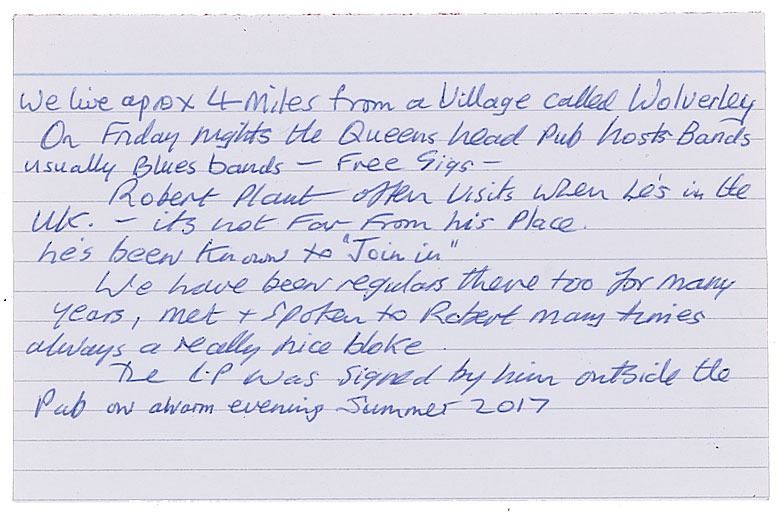 We live aprox 4 Miles from a Village called Wolverley
On Friday nights the Queens head Pub hosts Bands
usually Blues bands – Free Gigs –
Robert Plant often visits when he's in the
UK. – its not Far From his Place.
he's been Known to "Join in"
We have been regulars there too for many
years, met + spoken to Robert many times
always a really nice bloke
The L.P was signed by him outside the
Pub on a warm evening Summer 2017